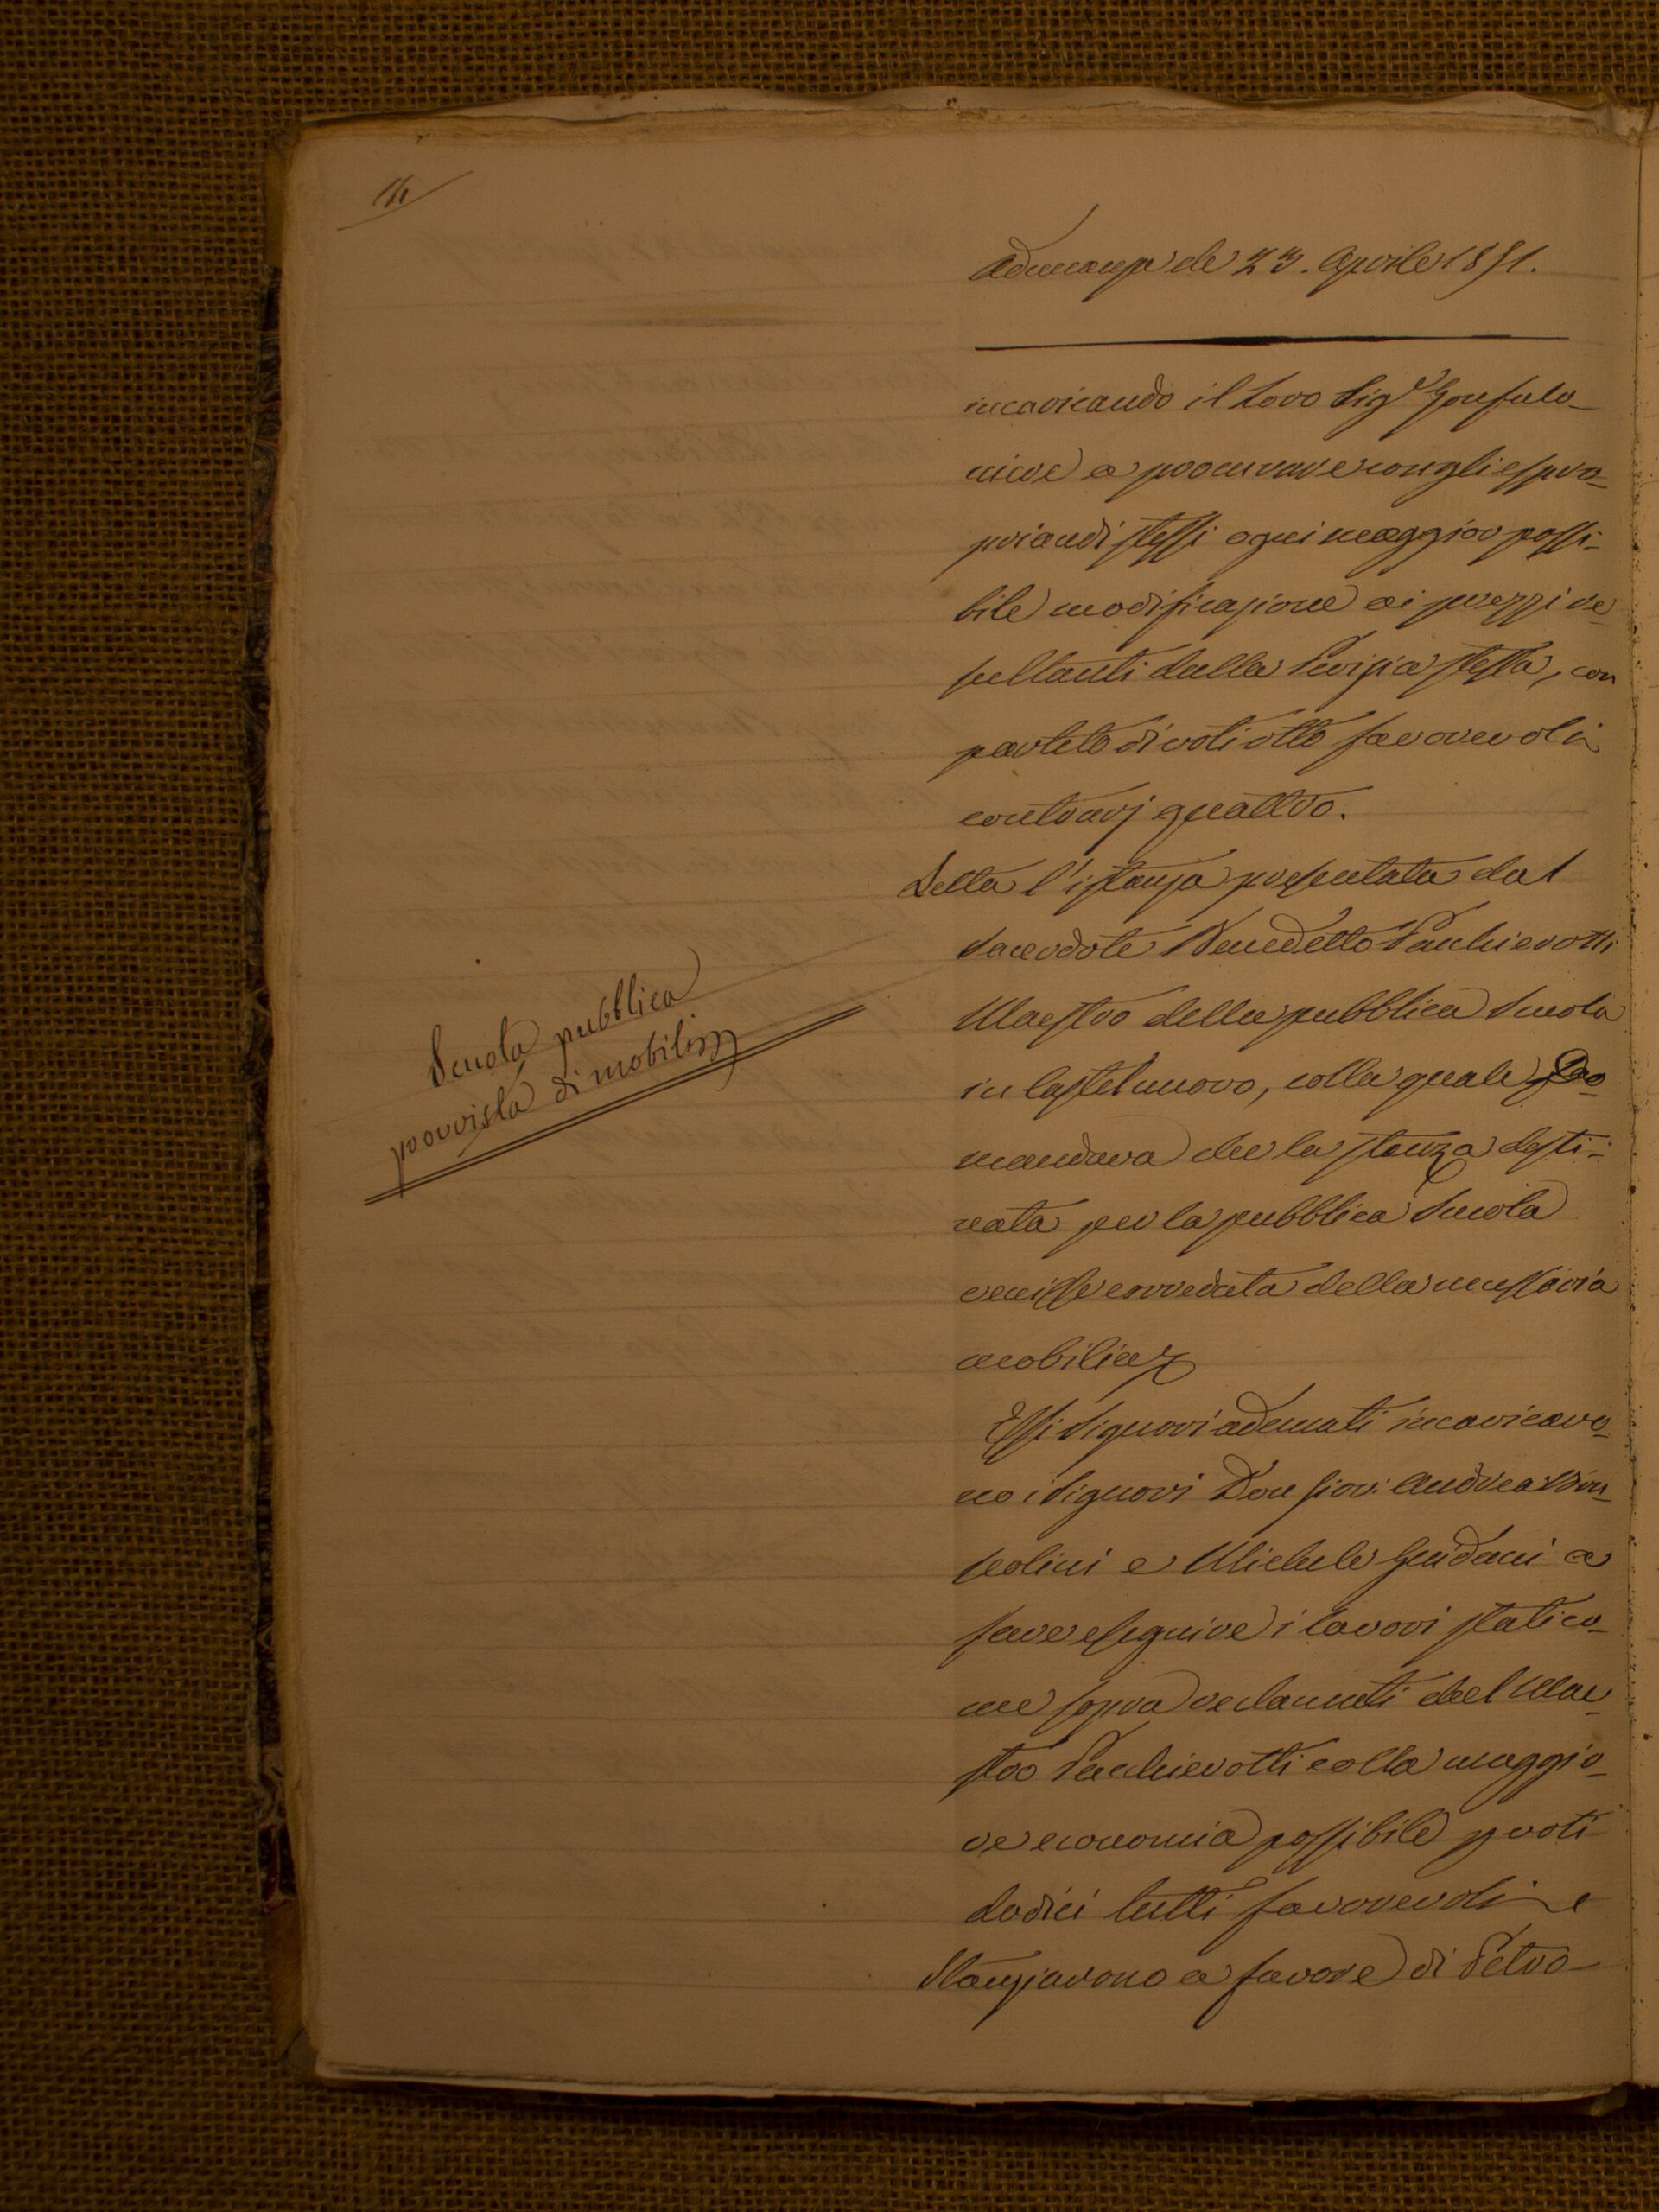 Adunanza de 23. Aprile 1851.
incaricando il Loro Sig.r Gonfalo-
niere a procurare con gli espro-
priandi stessi ogni maggior possi-
bile modificazione ai prezzi re-
sultanti dalla Perizia stessa, con
partito di voti otto favorevoli
contrarj quattro.
Letta l'istanza presentata dal
Sacerdote Benedetto Pacchierotti
Maestro della pubblica Scuola
in Castelnuovo, colla quale Do-
mandava che la stanza desti-
nata per la pubblica Scuola
venisse corredata della necessaria
mobilia
Scuola pubblica
provvista di mobilia
Essi Signori adunati incaricaro-
no i Signori Don Giov: Andrea
e Michele Guidani a
fare eseguire i lavori statico-
me sopra reclamati dal Mae-
stro Pacchierotti colla maggio-
re economia possibile p voti
dodici tutti favorevoli e
Stanziarono a favore di Pietro